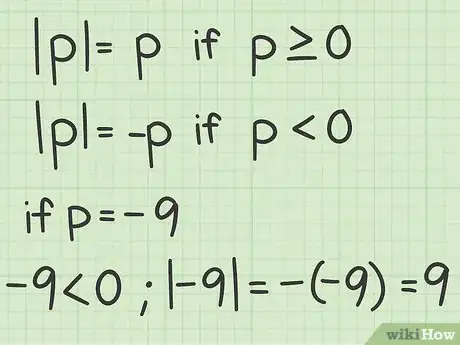 |p| = p if p ≥ 0
|p| = -p if p < 0
if p = -9
-9 < 0 ; |-9| = -(-9) = 9
wikiHow